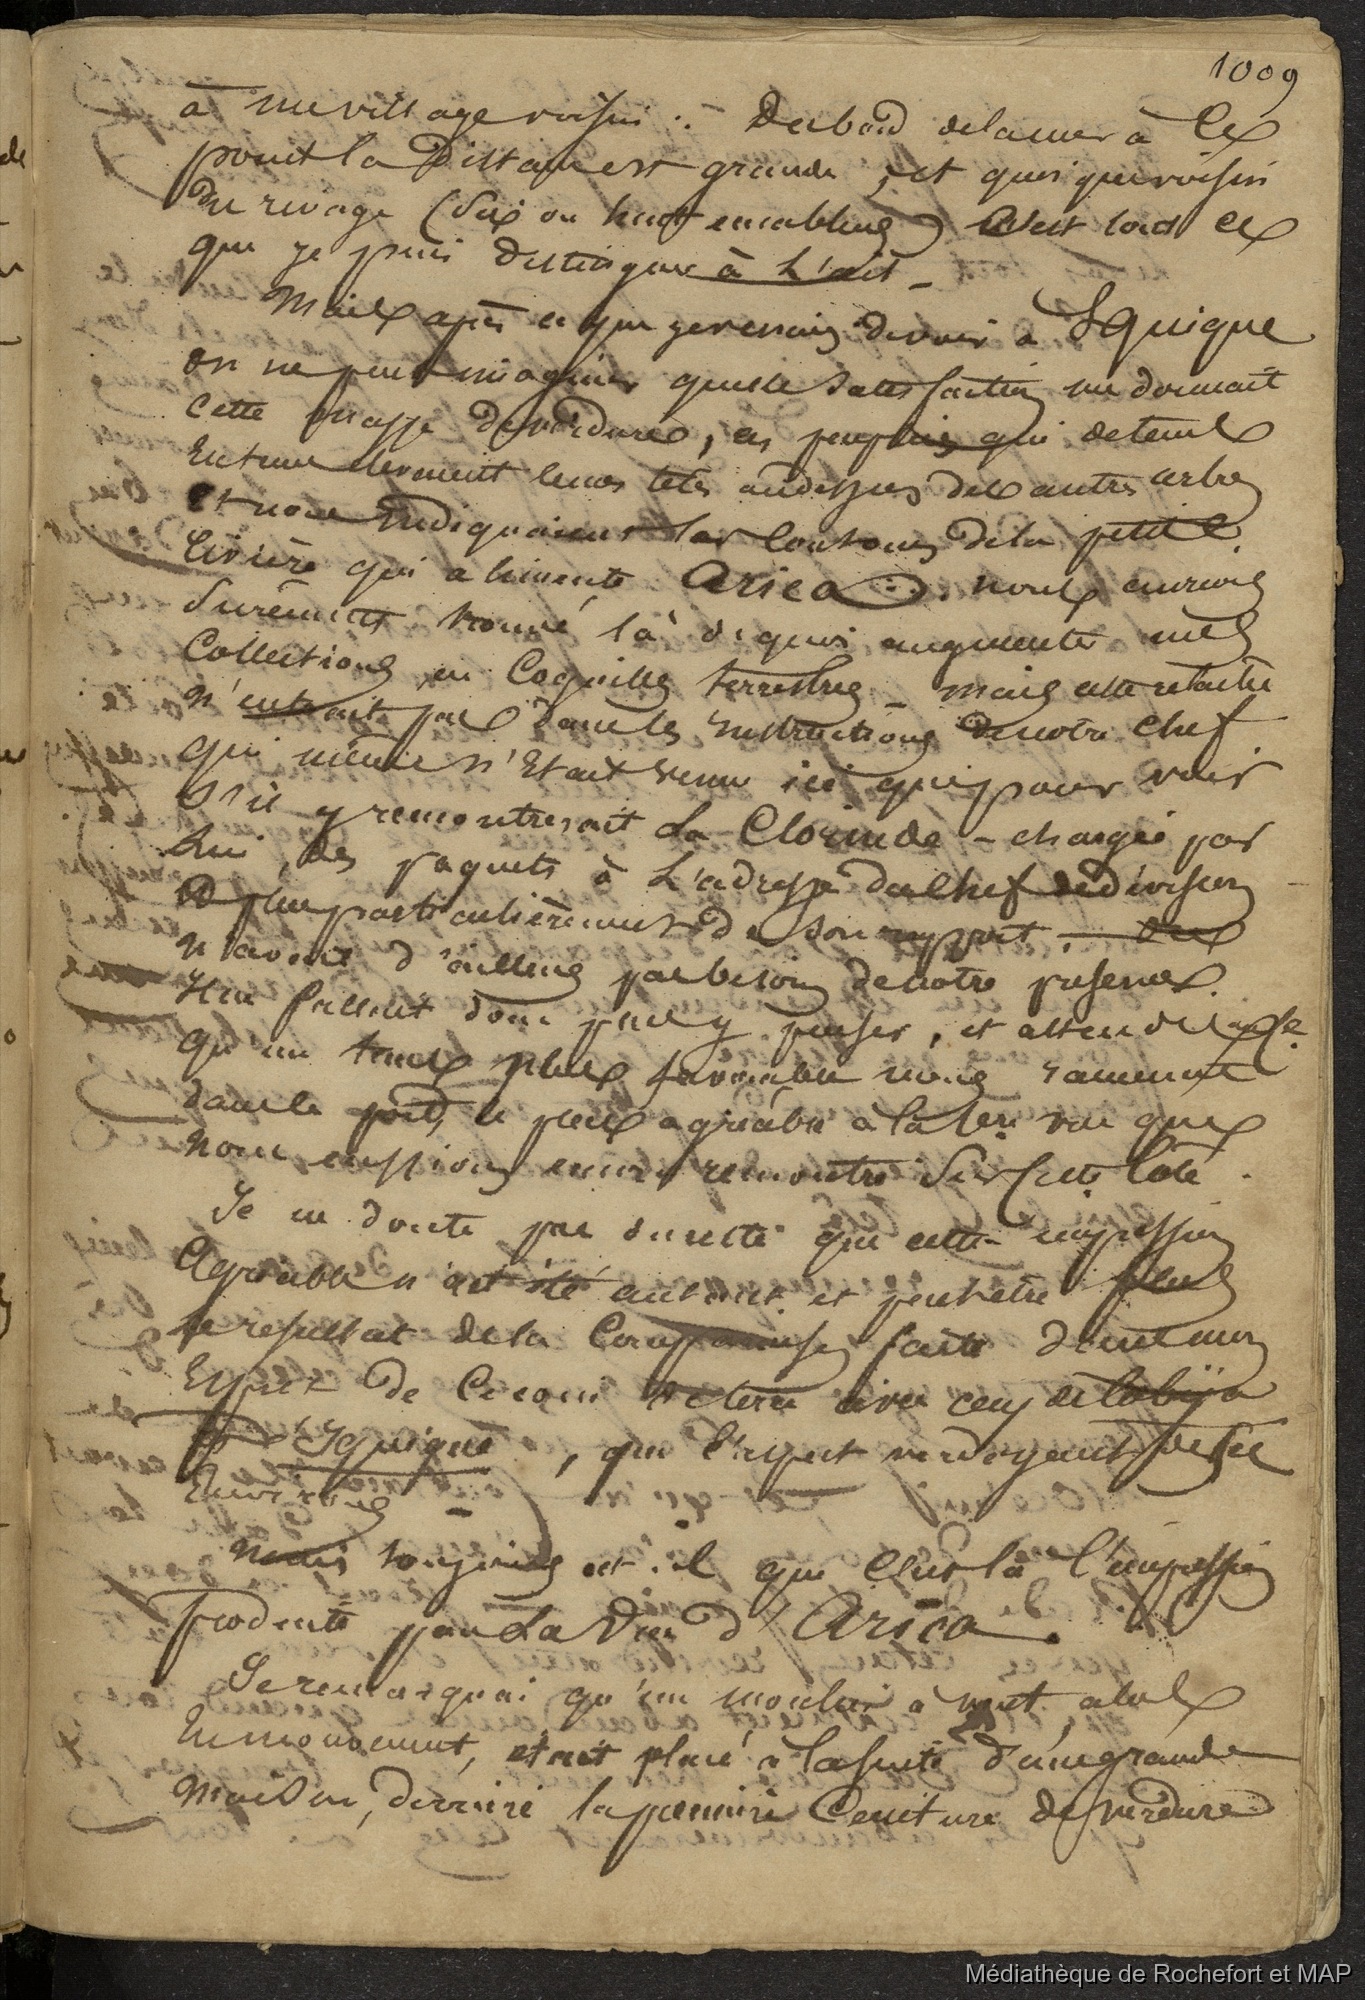 1009
à un village voisin :. Du bord de la mer à ce
point la Distance est grande, et quoique voisin
Du rivage (six ou huit encablures) c'est tout ce
que je puis distinguer à l'œil _
Mais après ce que je venais de voir à Iquique
on ne peut imaginer quelle satisfaction me donnait
cette masse de verdure, ces peupliers qui de tems
En tems élevaient leurs têtes audessus des autres arbres
et nous indiquaient les contours de la petite
rivière qui alimente Arica :. nous aurions
surement trouvé là de quoi augmenter mes
Collections en Coquilles terrestres _ mais cette relâche
n'entrait pas dans les instructions de notre chef
qui même n'Etait venu ici que pour voir
s'il y rencontrerait La Clorinde - chargée par
lui, des paquets à L'adresse du chef de division
et plus particulièrement de son rapport.
n'avait d'ailleurs pas besoin de notre présence.
Il ne fallait donc pas y penser, et attendre
qu'un tems plus favorable nous ramenat
dans le port le plus agréable à la vue que
nous eussions encore rencontré sur cette Côte.
Je ne doute pas du reste que cette impression
agréable n'ait été autant et peutêtre plus
le resultat de la Comparaison faite dans mon
Esprit de ce coin de terre avec ceux de Cobija
et d'Iquique, que l'aspect verdoyant de ses
Environs _
Mais toujours est-il que c'est là l'impression
produite par La Vue d'Arica.
Je remarquai qu'un moulin à vent, alors
En mouvement, était placé à la suite d'une grande
Maison, derrière la première Ceinture de verdure
Médiathèque de Rochefort et MAP